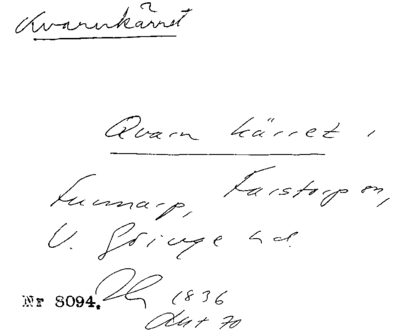 Kvarnkärret
Qvarn kärret,
Funnarp, Farstorp sn,
V. Göinge hd.
Nr 8094. 1836
Akt 70